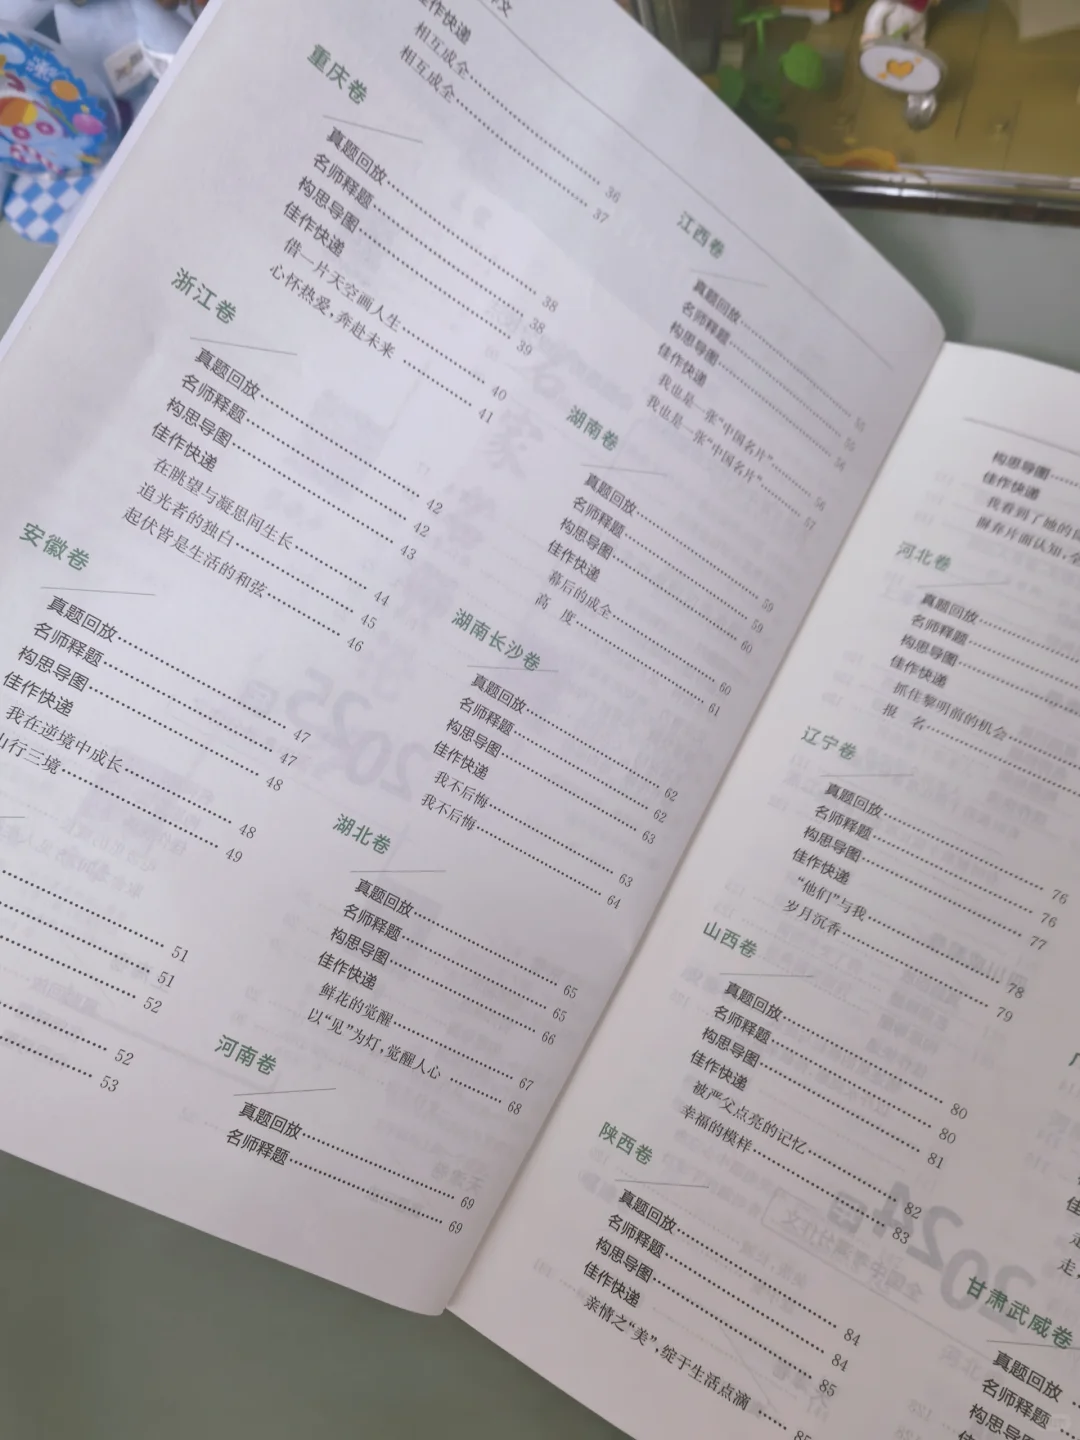 佳作快递
相互成全 36
相互成全 37
重庆卷
真题回放 38
名师释题 38
构思导图 39
佳作快递
借一片天空画人生 40
心怀热爱,奔赴未来 41
浙江卷
真题回放 42
名师释题 42
构思导图 43
佳作快递
在眺望与凝思间生长 44
追光者的独白 45
起伏皆是生活的和弦 46
安徽卷
真题回放 47
名师释题 47
构思导图 48
佳作快递
我在逆境中成长 48
山行三境 49
51
51
52
52
53
江西卷
真题回放 55
名师释题 55
构思导图 56
佳作快递
我也是一张“中国名片” 56
我也是一张“中国名片” 57
湖南卷
真题回放 59
名师释题 59
构思导图 60
佳作快递
幕后的成全 60
高 度 61
湖南长沙卷
真题回放 62
名师释题 62
构思导图 63
佳作快递
我不后悔 63
我不后悔 64
湖北卷
真题回放 65
名师释题 65
构思导图 66
佳作快递
鲜花的觉醒 67
以“见”为灯,觉醒人心 68
河南卷
真题回放 69
名师释题 69
构思导图
佳作快递
我看到了她的
摒弃片面认知,全
河北卷
真题回放
名师释题
构思导图
佳作快递
抓住黎明前的机会
报 名
辽宁卷
真题回放 76
名师释题 76
构思导图 77
佳作快递
“他们”与我 78
岁月沉香 79
山西卷
真题回放 80
名师释题 80
构思导图 81
佳作快递
被严父点亮的记忆 82
幸福的模样 83
陕西卷
真题回放 84
名师释题 84
构思导图 85
佳作快递
亲情之“美”,绽于生活点滴 85
甘肃武威卷
真题回放
名师释题
构思导图